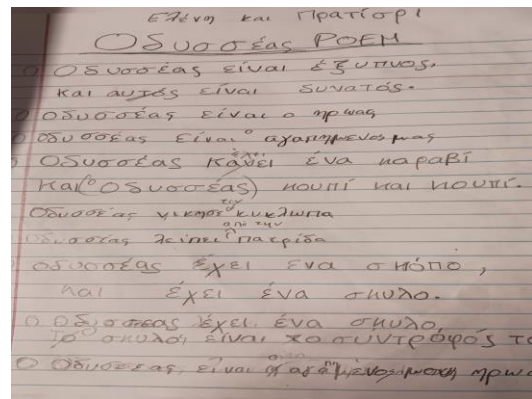 Ελένη και Πρατίσρι
Οδυσσέας POEM
Ο Οδυσσέας είναι έξυπνος,
και αυτός είναι δυνατός.
Ο Οδυσσέας είναι ο ηρωας
Ο Οδυσσέας είναι ο αγαπημενος μας
Ο Οδυσσέας κάνει έχει ένα καραβί
Και (ο Οδυσσέας) κουπί και κουπί.
Οδυσσέας νικησε τον κυκλωπα
Οδυσσέας λείπει από την πατρίδα
Ο Οδυσσέας έχει ενα σκόπο,
και έχει ένα σκυλο.
Ο Οδυσσεας έχει ένα σκυλο,
Το σκυλο, είναι χο συντρόφός το
Ο Οδυσσεας είναι ηρωα